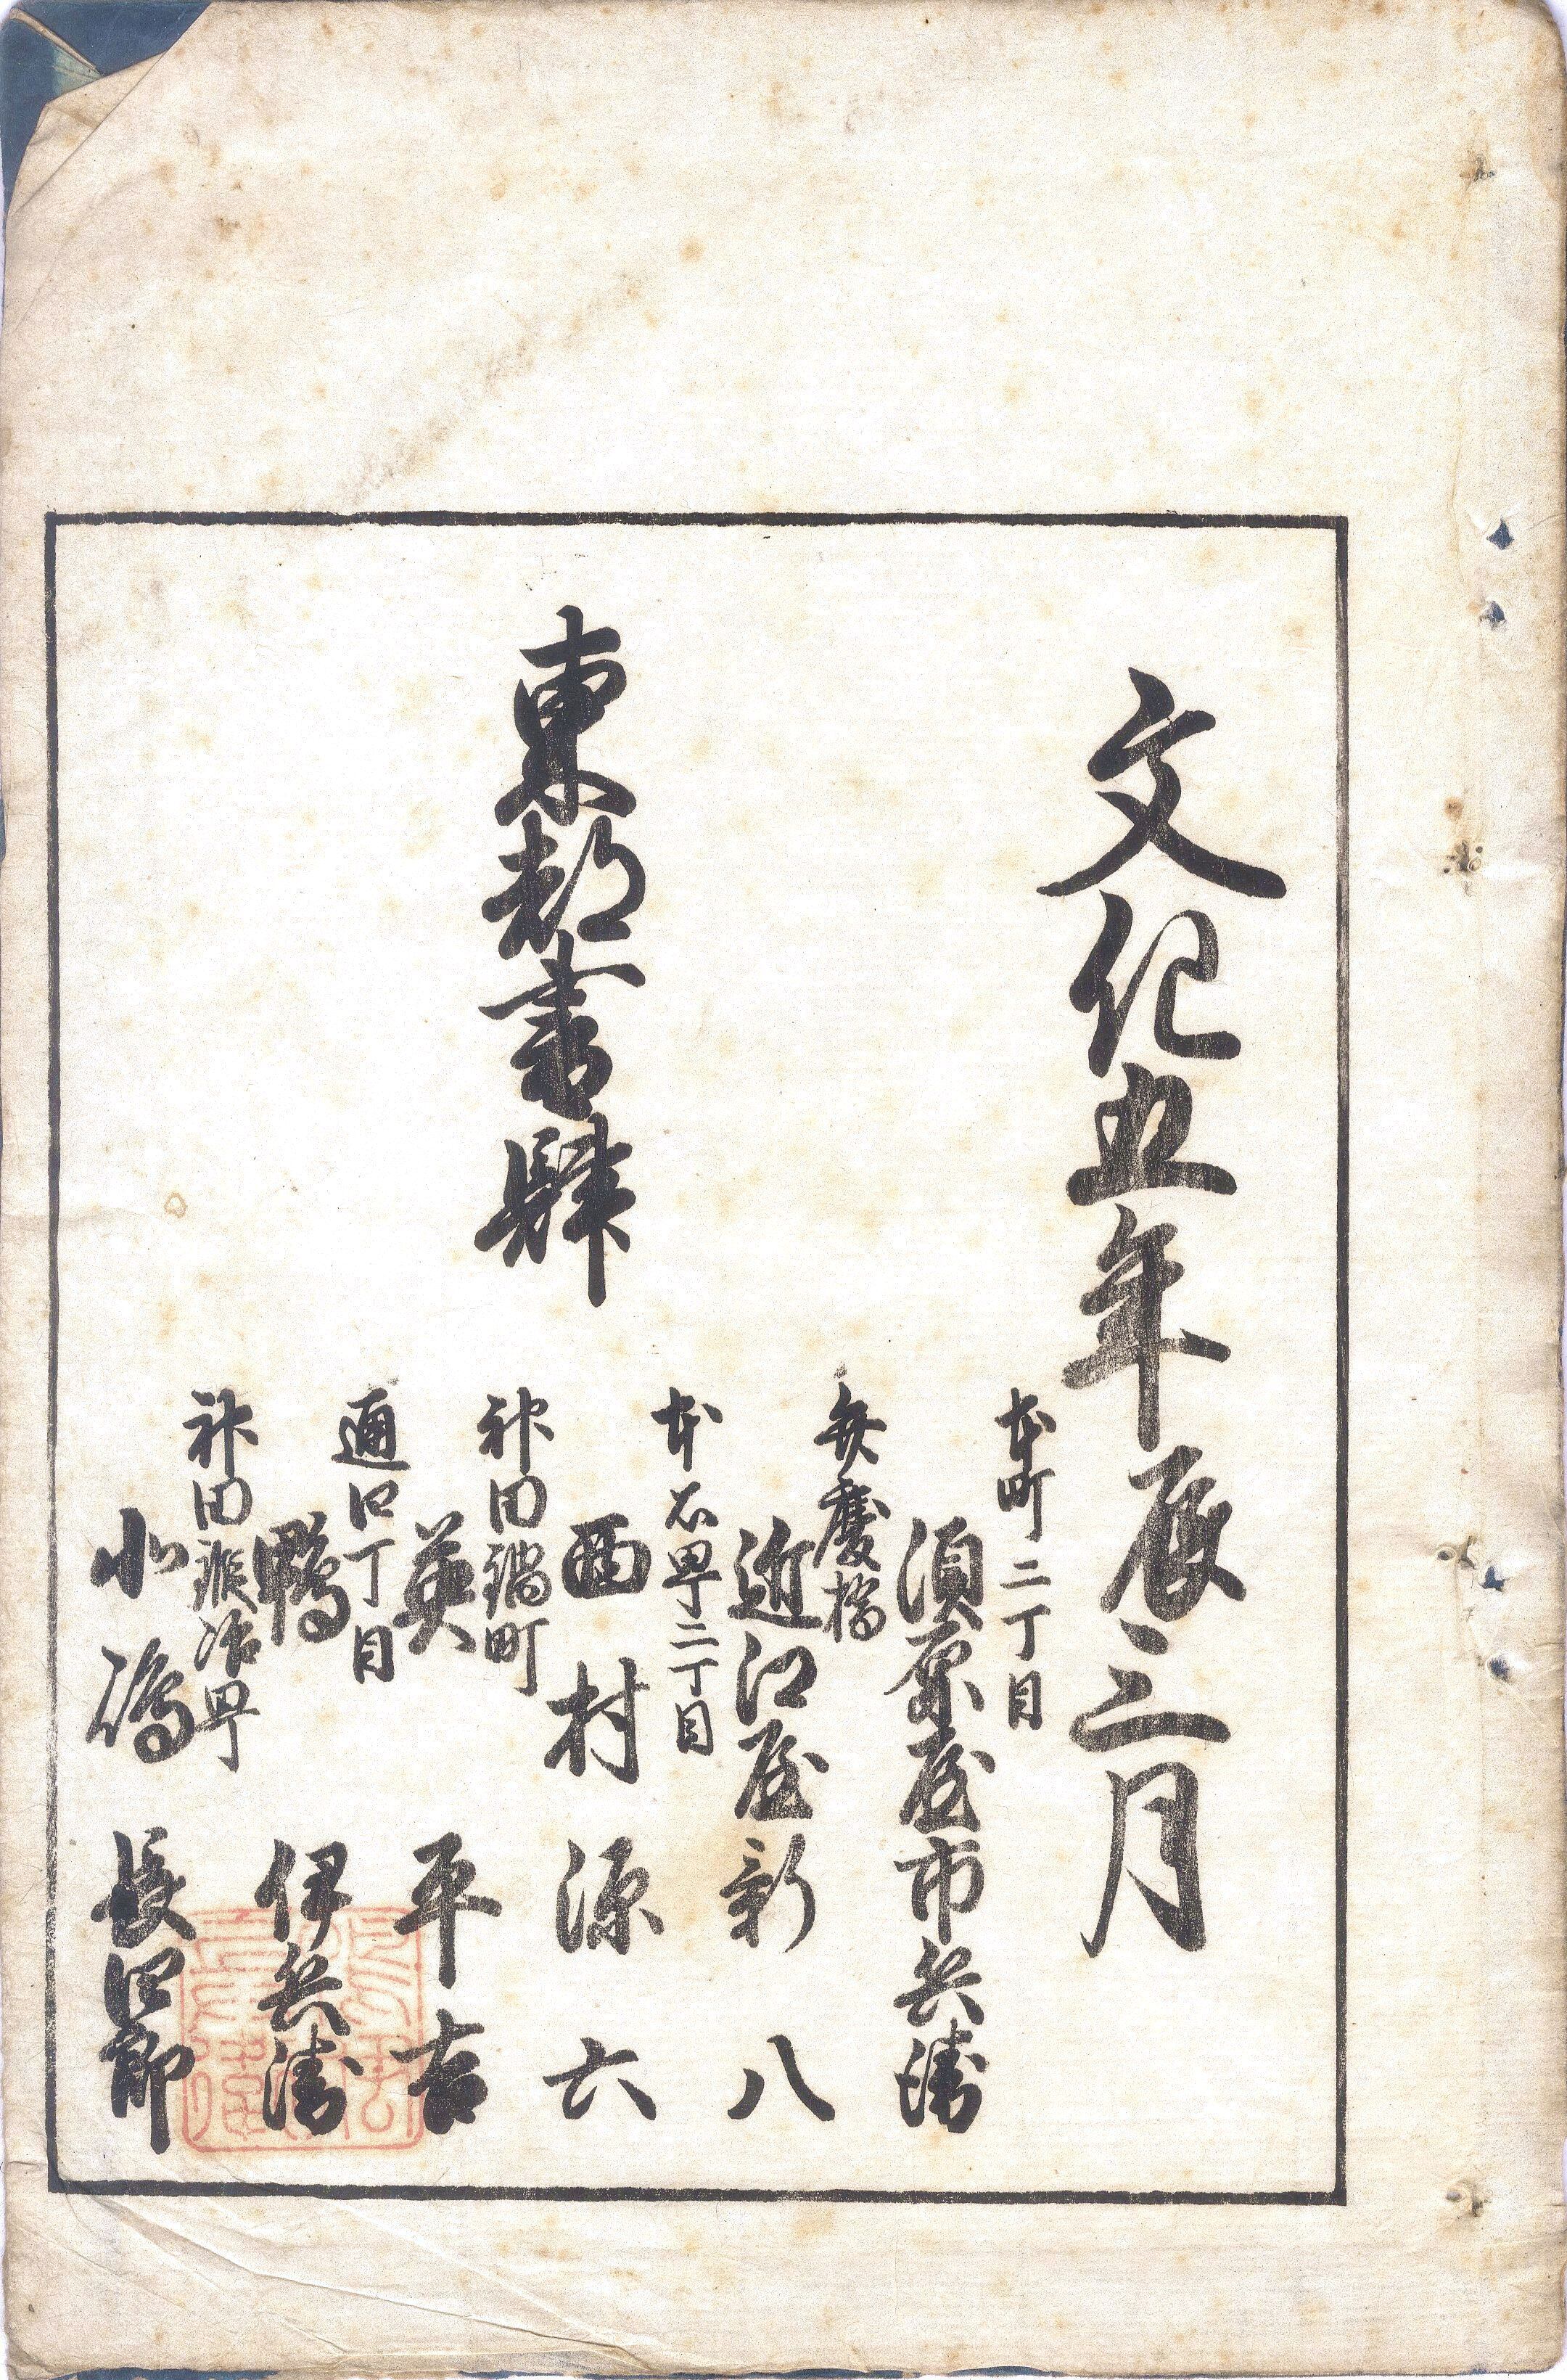 文化五年辰三月
東都書肆
本町二丁目
須原屋市兵衛
弁慶橋
近江屋新八
本石町二丁目
西村源六
神田鍋町
英平吉
通四丁目
鴨伊兵衛
神田鍛冶町
小嶋長四郎